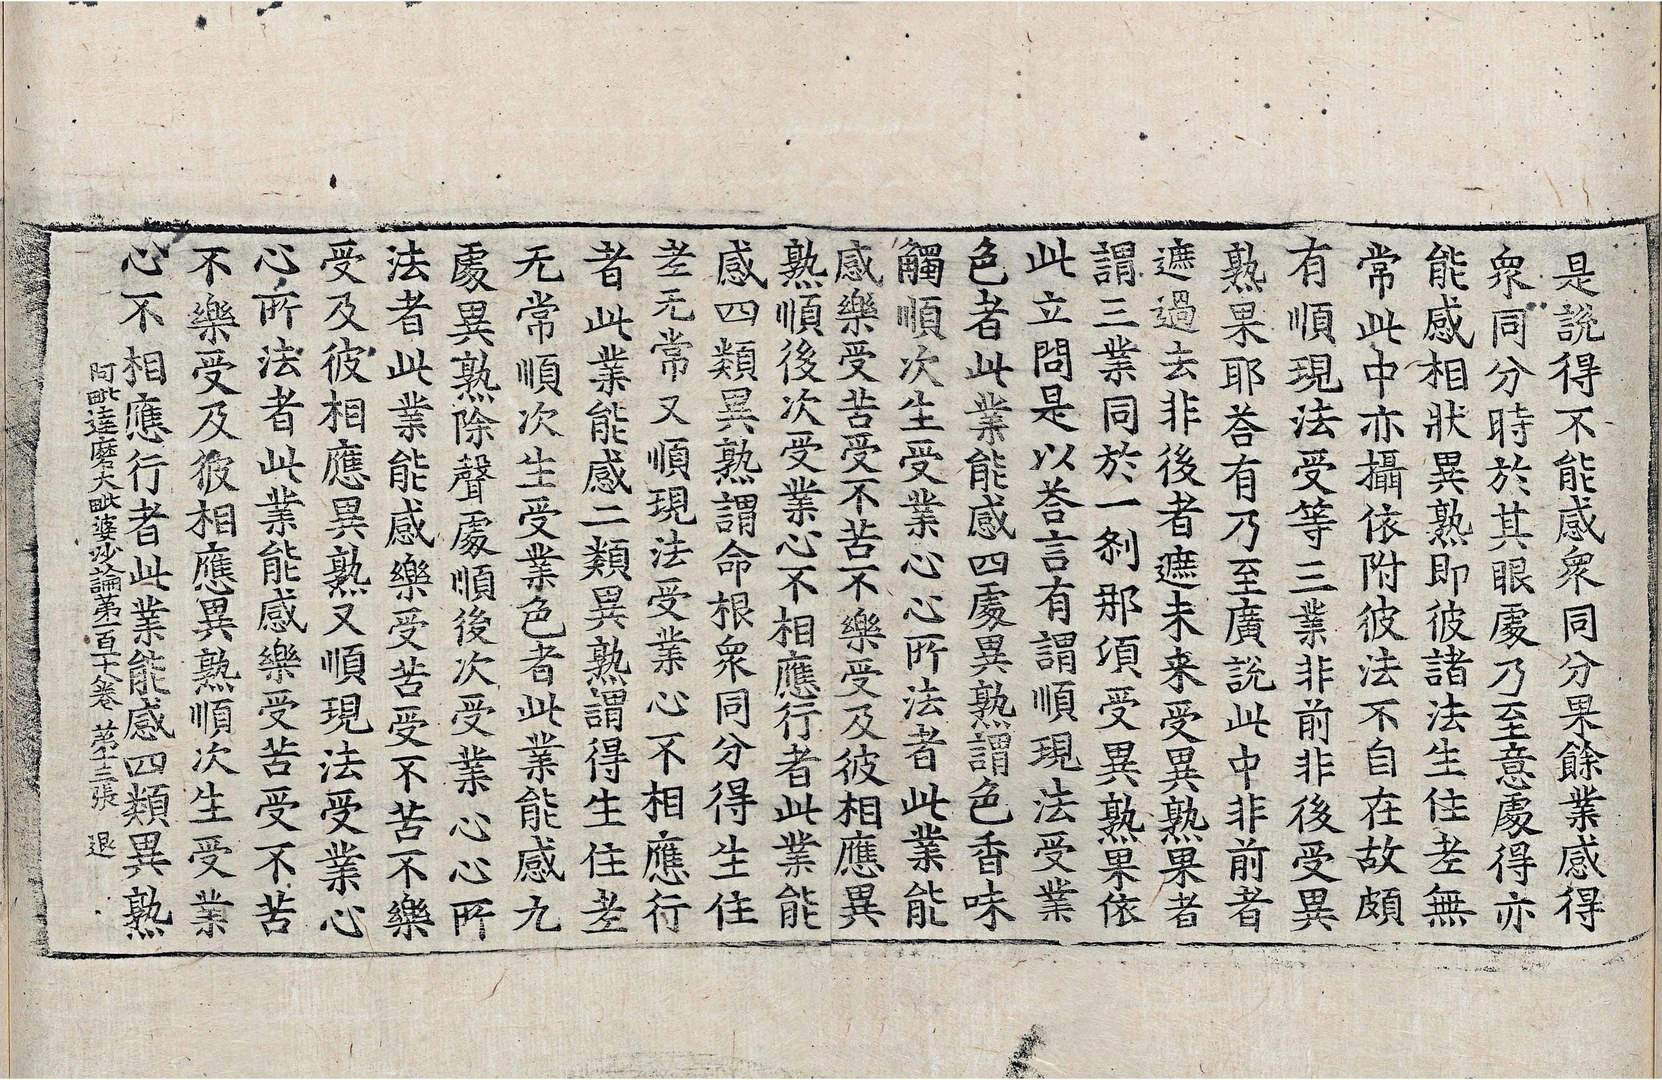 是說得不能感衆同分果餘業感得
衆同分時於其眼處乃至意處得亦
能感相狀異熟即彼諸法生住老無
常此中亦攝依附彼法不自在故頗
有順現法受等三業非前非後受異
熟果耶荅有乃至廣說此中非前者
遮過去非後者遮未来受異熟果者
謂三業同於一剎那頃受異熟果依
此立問是以荅言有謂順現法受業
色者此業能感四處異熟謂色香味
觸順次生受業心心所法者此業能
感樂受苦受不苦不樂受及彼相應異
熟順後次受業心不相應行者此業能
感四類異熟謂命根衆同分得生住
老无常又順現法受業心不相應行
者此業能感二類異熟謂得生住老
无常順次生受業色者此業能感九
處異熟除聲處順後次受業心心所
法者此業能感樂受苦受不苦不樂
受及彼相應異熟又順現法受業心
心所法者此業能感樂受苦受不苦
不樂受及彼相應異熟順次生受業
心不相應行者此業能感四類異熟
阿毗達磨大毗婆沙論第一百十六卷 第十三張 退